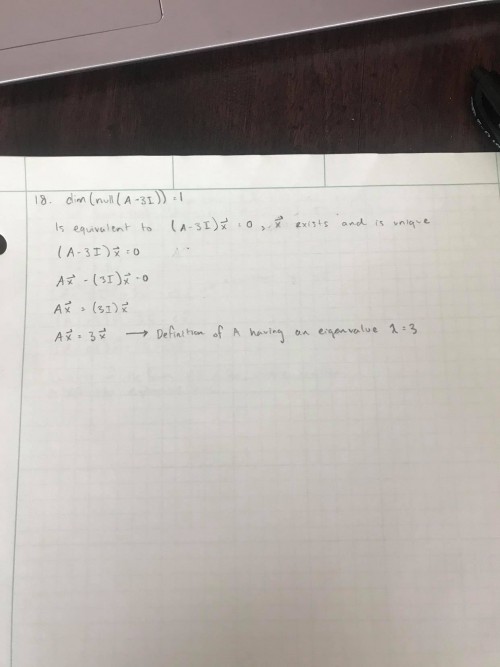 18. dim(null(A-3I))=1
Is equivalent to (A-3I)x⃗=0, x⃗ exists and is unique
(A-3I)x⃗=0
Ax⃗-(3I)x⃗=0
Ax⃗=(3I)x⃗
Ax⃗=3x⃗ → Definition of A having an eigenvalue λ=3